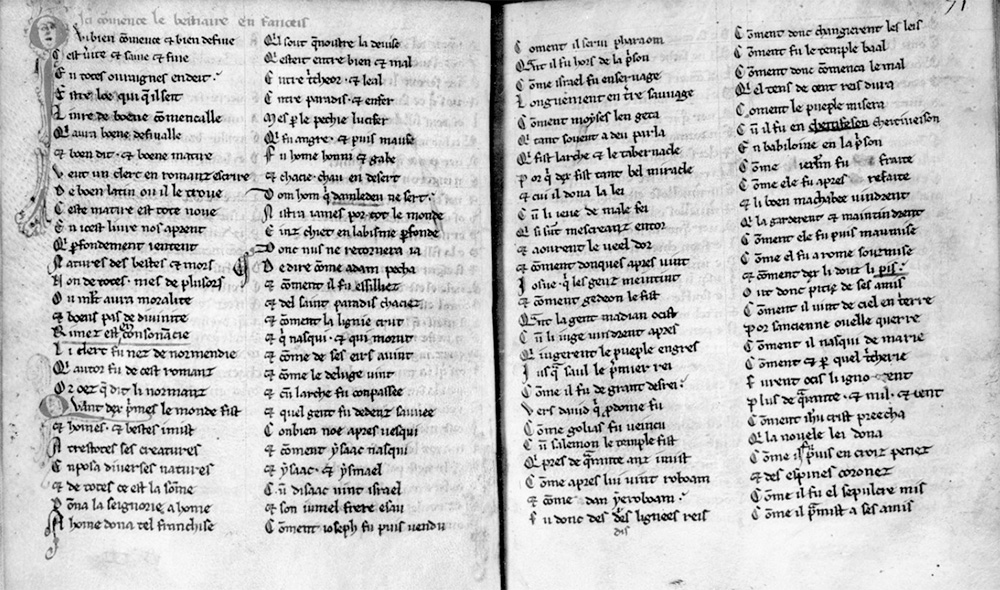 Ici comence le bestiaire en franceis
Qui bien comence et bien define
C est verite et saine et fine
E n totes ouraignes en deit
E stre loe qui q il seit
L iure de boene comencaille
Q aura boene definaille
et boen dit et boene matire
V eut un clerc en romanz escrire
D e boen latin ou il le troue
C este matire est tote noue
E n icest liure nos aprent
Q parfondement i entent
N atures des bestes et mors
N on de totes mes de plusors
O u mlt aura moralite
et boens pas de diuinite
R imez est en consonacie
L i clerc fu nez de normendie
Q autor fu de cest romanz
O r oez q dit li normanz
Quant dex pmes le monde fist
et homes et bestes i mist
A trestotes ses creatures
E nposa diuerses natures
et de totes ce est la some
D ona la seignorie a home
A home dona tel franchise
Q il sout conoistre la deuise
Q esteit entre bien et mal
E ntre tcheor et leal
E ntre paradis et enfer
M es p le pechie lucifer
Q fu angre et puis mause
F u home honni et gabe
et chacie en desert
D om hom q damledeu ne sert
N istra iames por tot le monde
E inz chiet en labisme pfonde
D onc nus ne retornera ia
D e dire come adam pecha
et coment il fu essilliez
et del saint paradis chaciez
et coment la lignie crut
et q nasqui et qui morut
et come de ses eirs auint
et come le deluge uint
et com larche fu conpassee
et quel gent fu dedenz sauuee
C onbien noe apres uesqui
et coment ysaac nasqui
et ysaac et ysmael
C om disaac uint israel
et son iumel frere esau
C oment ioseph fu puis uendu
71
C oment il serui pharaon
Q ant il fu hors de la pson
C ome israel fu en seruage
L onguement en tere sauuage
C oment moyses len geta
Q tant souent a deu parla
Q fist larche et le tabernacle
P or q dex fist tant bel miracle
et cui il dona la lei
C om li ueue de male fei
Q si sunt mescreanz entor
et aourent le ueel dor
et coment donques apres uint
I osue q les genz meintint
et coment gedeon le fist
Q ant la gent madian ocist
C om li iuge uindrent apres
Q iugerent le pueple engres
I usq saul le pmier rei
C ome il fu de grant desrei
V ers dauid q pdome fu
C ome golias fu uencu
C om salemon le temple fist
Q pres de qrante anz i mist
C ome apres lui uint roboam
et come dan yeroboam
F u donc des lignees reis
dis
C oment donc changierent les leis
C oment fu le temple baal
C oment donc comenca le mal
Q el tens de cent reis dura
C oment le pueple misera
C om il fu en chertiueson
E n babiloine en la pson
C ome ierlm fu fraite
C ome ele fu apres refaite
et li boen machabee uindrent
Q la garderent et maintindrent
C oment ele fu puis maumise
C ome el fu a rome sourmise
et coment dex li douz li pis
O ut donc pitie de ses amis
C oment il uint de ciel en terre
P or sancienne ouelle querre
C oment il nasqui de marie
C oment et p quel tcherie
F urent ocis li ignocent
P lus de qrante et mil et cent
C oment ihu crist preecha
Q la nouele lei dona
C ome is puis en croiz pener
et des espines coroner
C ome il fu el sepulcre mis
C ome il pmist a ses amis